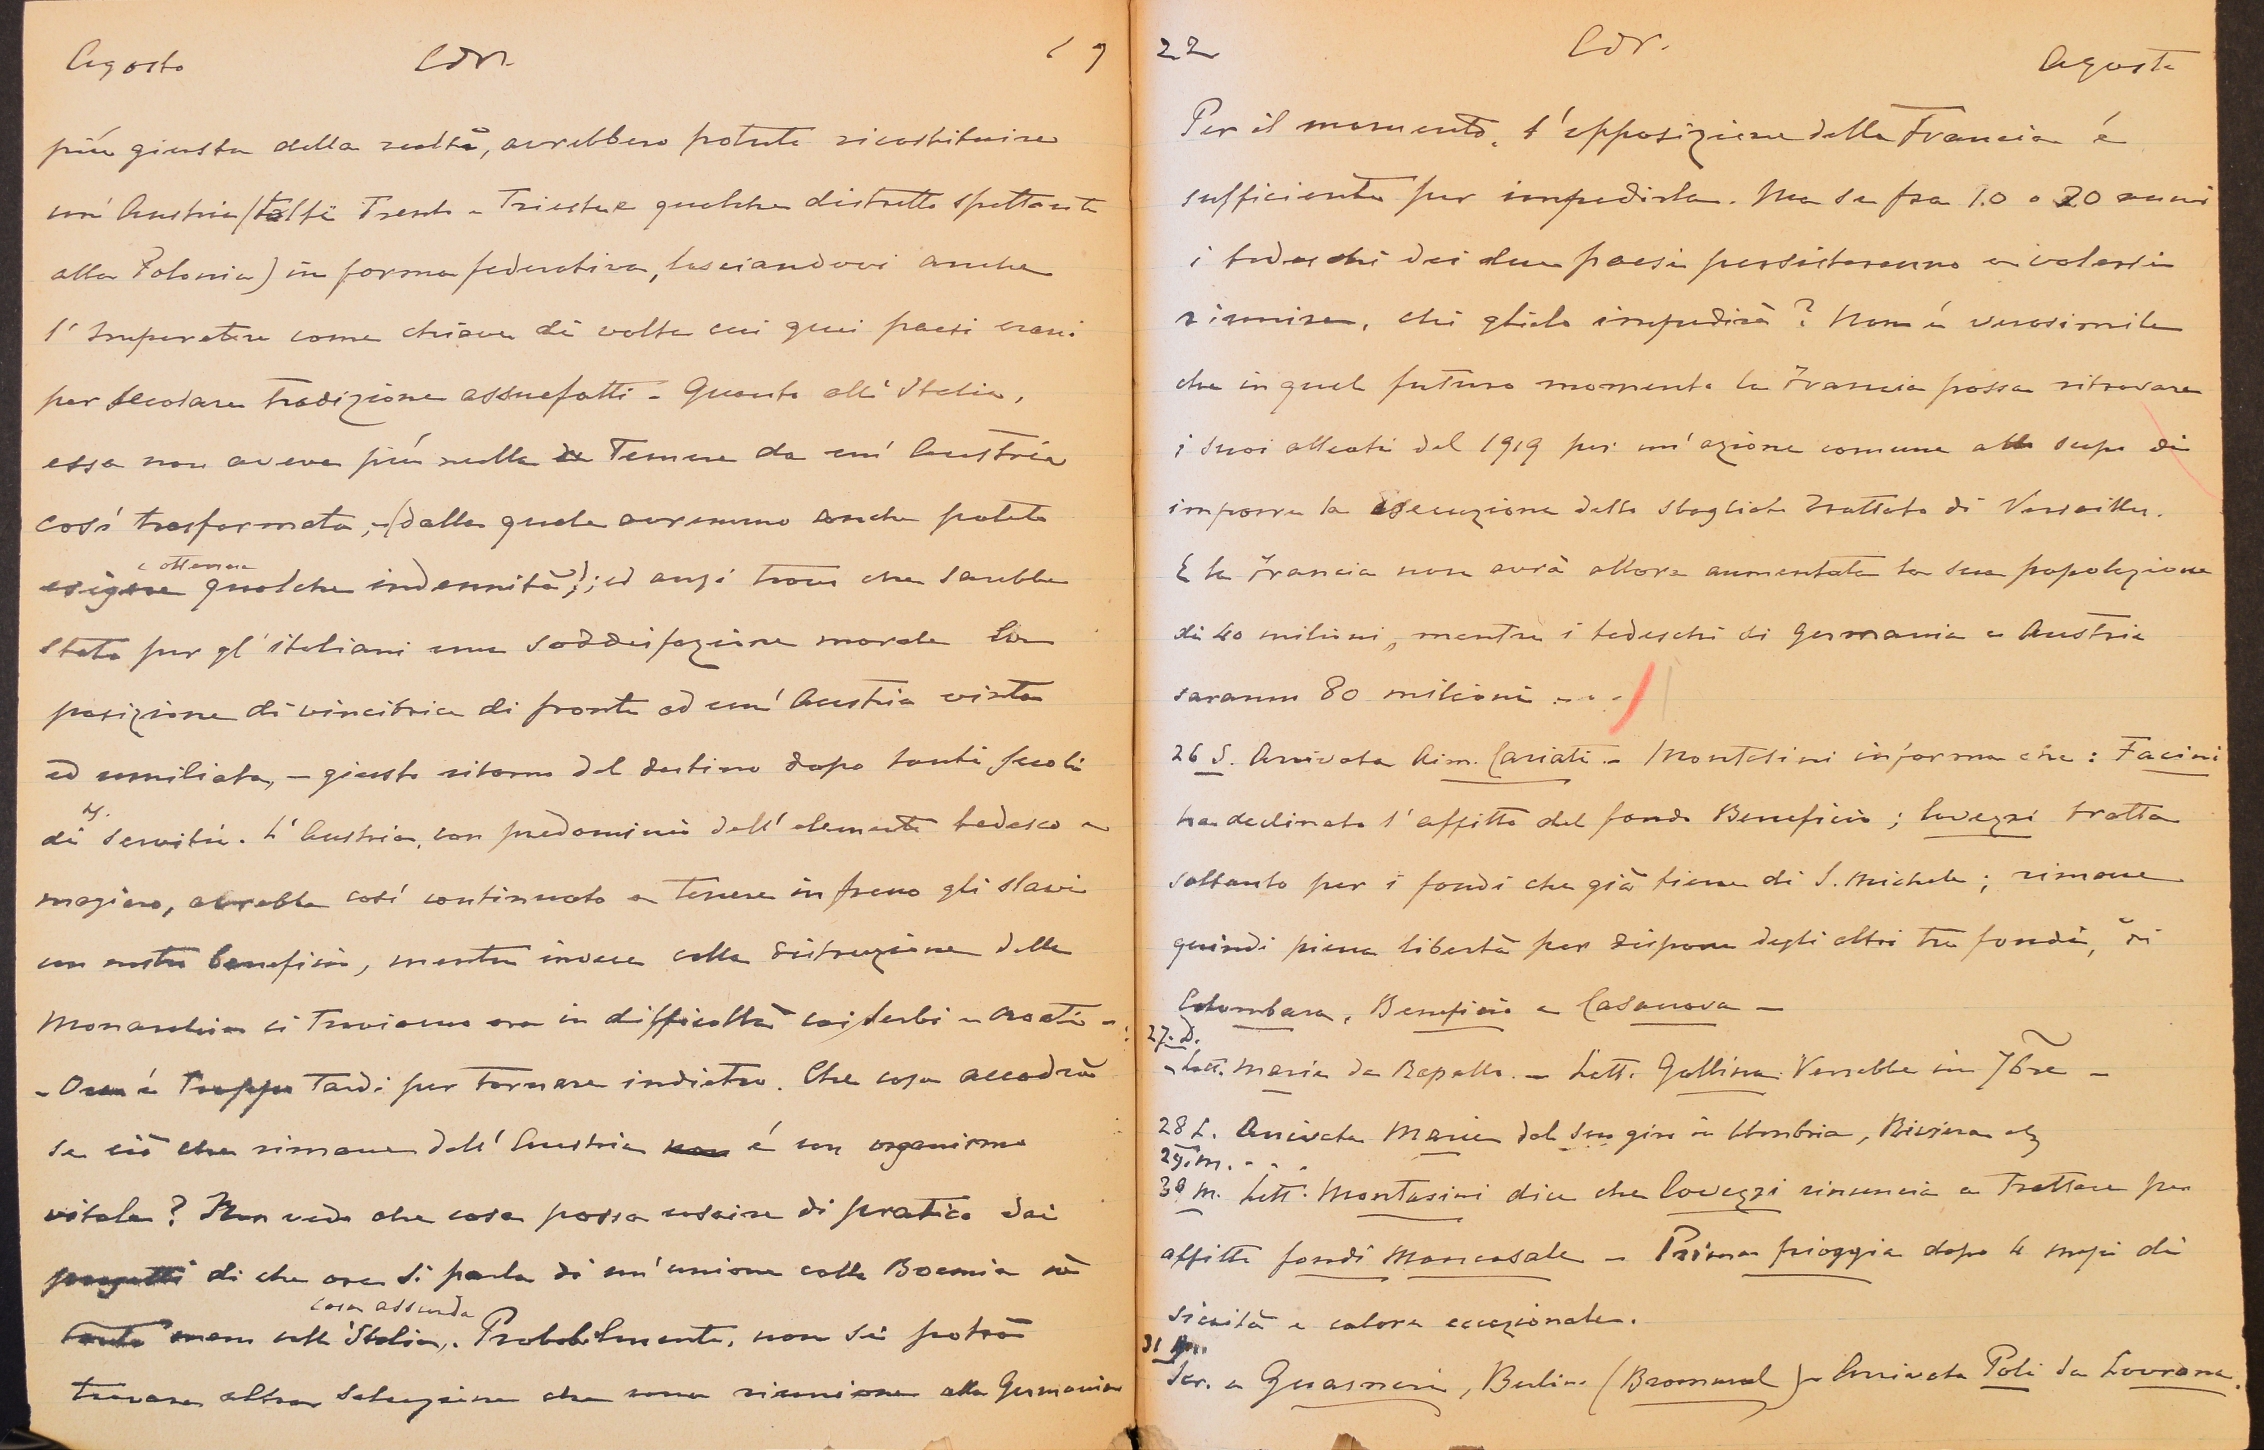 Agosto Cdr. 19
più giusta della realtà, avrebbero potuto ricostituire
un'Austria (tolti Trento e Trieste e qualche distretto spettante
alla Polonia) in forma federativa, lasciandovi anche
l'Imperatore come chiave di volta cui quei paesi erano
per secolare tradizione assuefatti - Quanto all'Italia,
essa non aveva più nulla da temere da un'Austria
così trasformata, (dalla quale avremmo anche potuto
esigere e ottenere qualche indennità); ed anzi trovo che sarebbe
stata per gl'italiani una soddisfazione morale la
posizione di vincitrice di fronte ad un'Austria vinta
ed umiliata, - giusto ritorno del destino dopo tanti secoli
di servitù. L'Austria, con predominio dell'elemento tedesco e
magiaro, avrebbe così continuato a tenere in freno gli slavi
con nostro beneficio, mentre invece colla distruzione della
Monarchia ci troviamo ora in difficoltà coi serbi e croati -
- Ora è troppo tardi per tornare indietro. Che cosa accadrà
se ciò che rimane dell'Austria non è un organismo
vitale? Non vedo che cosa possa uscire di pratico dai
progetti di che ora si parla di un'unione colla Boemia nè
tanto meno coll'Italia, cosa assurda. Probabilmente, non si potrà
trovare altra soluzione che una riunione alla Germania
22 Cdr. Agosto
Per il momento, l'opposizione della Francia è
sufficiente per impedirla. Ma se fra 10 o 20 anni
i tedeschi dei due paesi persisteranno a volersi
riunire, chi glielo impedirà? Non è verosimile
che in quel futuro momento la Francia possa ritrovare
i suoi alleati del 1919 per un'azione comune allo scopo di
imporre la esecuzione dello sbagliato Trattato di Versailles.
E la Francia non avrà allora aumentata la sua popolazione
di 40 milioni, mentre i tedeschi di Germania e Austria
saranno 80 milioni . . . .
26 S. Arrivata Aim. Cariati - Montesini informa che: Facini
ha declinato l'affitto del fondo Beneficio; Covezzi tratta
soltanto per i fondi che già tiene di S. Michele; rimane
quindi piena libertà per disporre degli altri tre fondi, di
Colombara, Beneficio e Casanova -
27. D.
- Lett. Maria da Rapallo. - Lett. Gallina: Verrebbe in 7bre -
28 L. Arrivata Maria dal suo giro in Umbria, Riviera etc
29. M. - . .
30 M. Lett. Montesini dice che Covezzi rinuncia a trattare per
affitto fondi Mancasale - Prima pioggia dopo 4 mesi di
siccità e calore eccezionale.
31
Scr. a Guarneri, Berlino (Bromural) - Arrivata Poli da Lovrana.